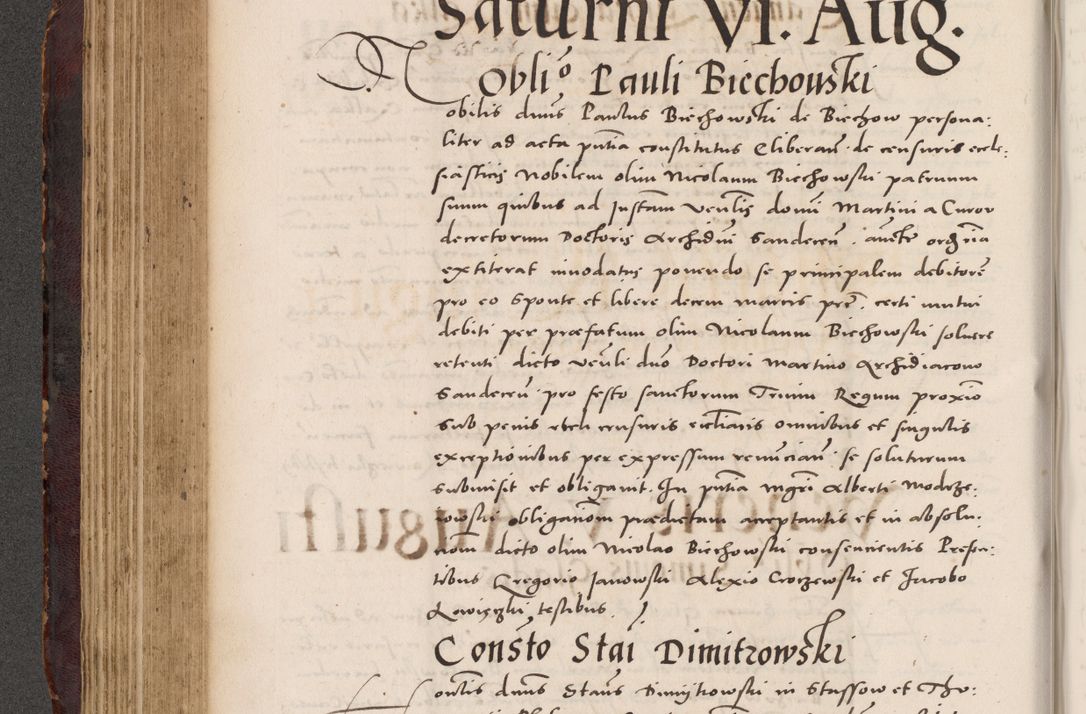 Saturni VI. Aug.
Obli.º Pauli Biechowski
Nobilis dnus Paulus Biechowski de Biechow persona:
liter ad acta pntia constitutus Cliberan. de censuris eccle:
siasticis Nobilem olim Nicolaum Biechowski patruum
suum quibus ad Instam venlis domi Martini a Curow
decretorum Doctoris Archidni Sandecen. aucte ordria
extiterat innodatus ponendo se principalem debitore
pro eo sponte et libere decem marcis pec. certi mutui
debiti per praefatum olim Nicolaum Biechowski solvere
retenti dicto venli dno Doctori Martino Archidiacono
Sandecen pro festo sanctorum Trium Regum proxio
Sub penis censuris omnibus et singulis
exceptionibus per expressum renuncian se soluturum
submisit et obligavit. In pntia mgri Alberti Modrze:
wowski obligationem praedictam acceptantis et in absolu:
tiom dicto olim Nicolao Biechowski consencientis Presen:
tibus Gregorio Janowski Alexio Croczewski et Jacobo
testibus
Consto Stai Dimitrowski
ontis dnus Staus Dimijtrowski in Stassow et Tho: